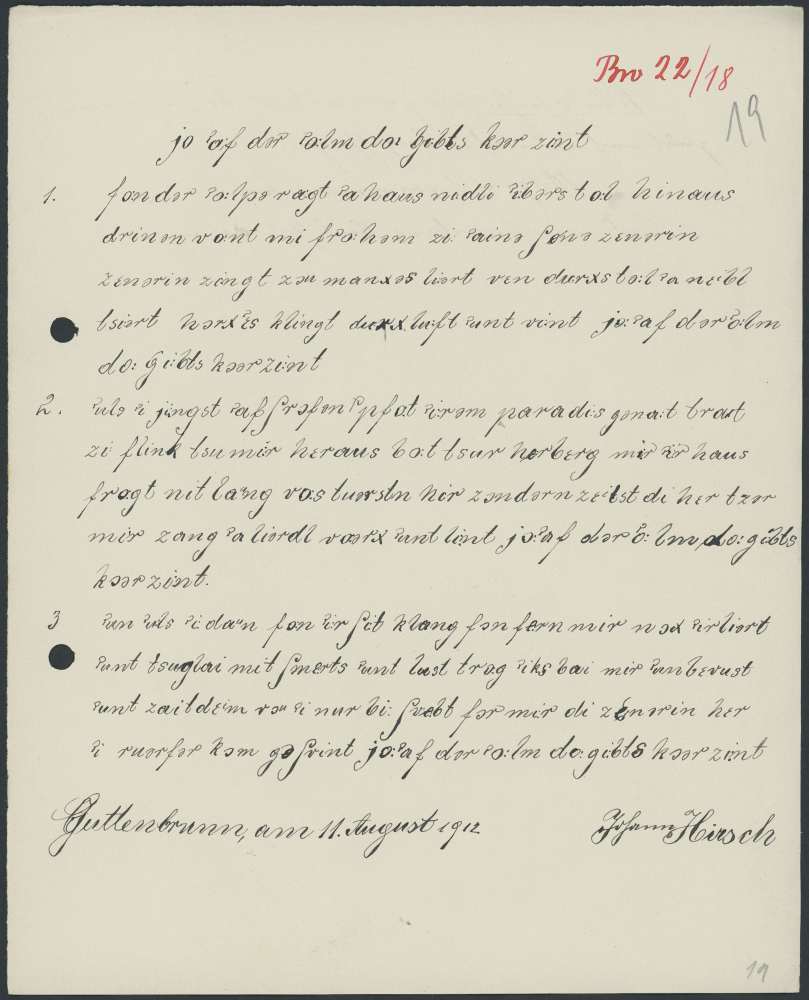 Bro 22/18
19
jo ˀaf dər ˀa:lm do: gibts kɔər zint
1. fon dər ˀa:lpə ragt ˀa haus nidli ˀibərs ta:l hinaus
drinən vont mi frohəm zi: ˀainə ʃenə zenərin
zenərin zingt zɔu manxəs liərt ven durxs ta:l ˀa nebl
tsiərt hərx ˀes klingt durx luft ˀunt vint jo: ˀaf dər ˀa:lm
do: gibts kɔər zint
2. ˀals ˀi jingst ˀaf ʃrofən ˀpfat ˀirəm paradis gəna:t trat
zi flink tsu mir heraus bo:t tsur herberg mir ˀir haus
fragt nit lang vos tuərstn hir zəndərn zetst di her tzər
mir zang ˀa liərdl vaərx ˀunt lint jo: ˀaf dər ˀa:lm, do: gibts
kɔər zint.
3 ˀun ˀals ˀi dan fon ˀir ʃit klang fən fern mir nɔx ˀir liərt
ˀunt tsuglai mit ʃmerts ˀunt lust trog ˀiks bai mir ˀunbevust
ˀunt zait dem vɔu ˀi nur bi: ʃvebt fər mir di zenərin her
ˀi ruərfər kəm gəʃvint jo: ˀaf dər ˀa:lm do: gibts kɔər zint
Guttenbrunn, am 11. August 1912
Johann Hirsch
19